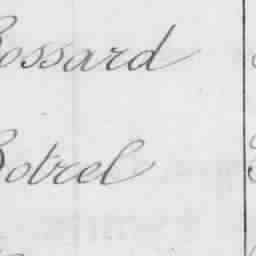 Bossard
Botrel